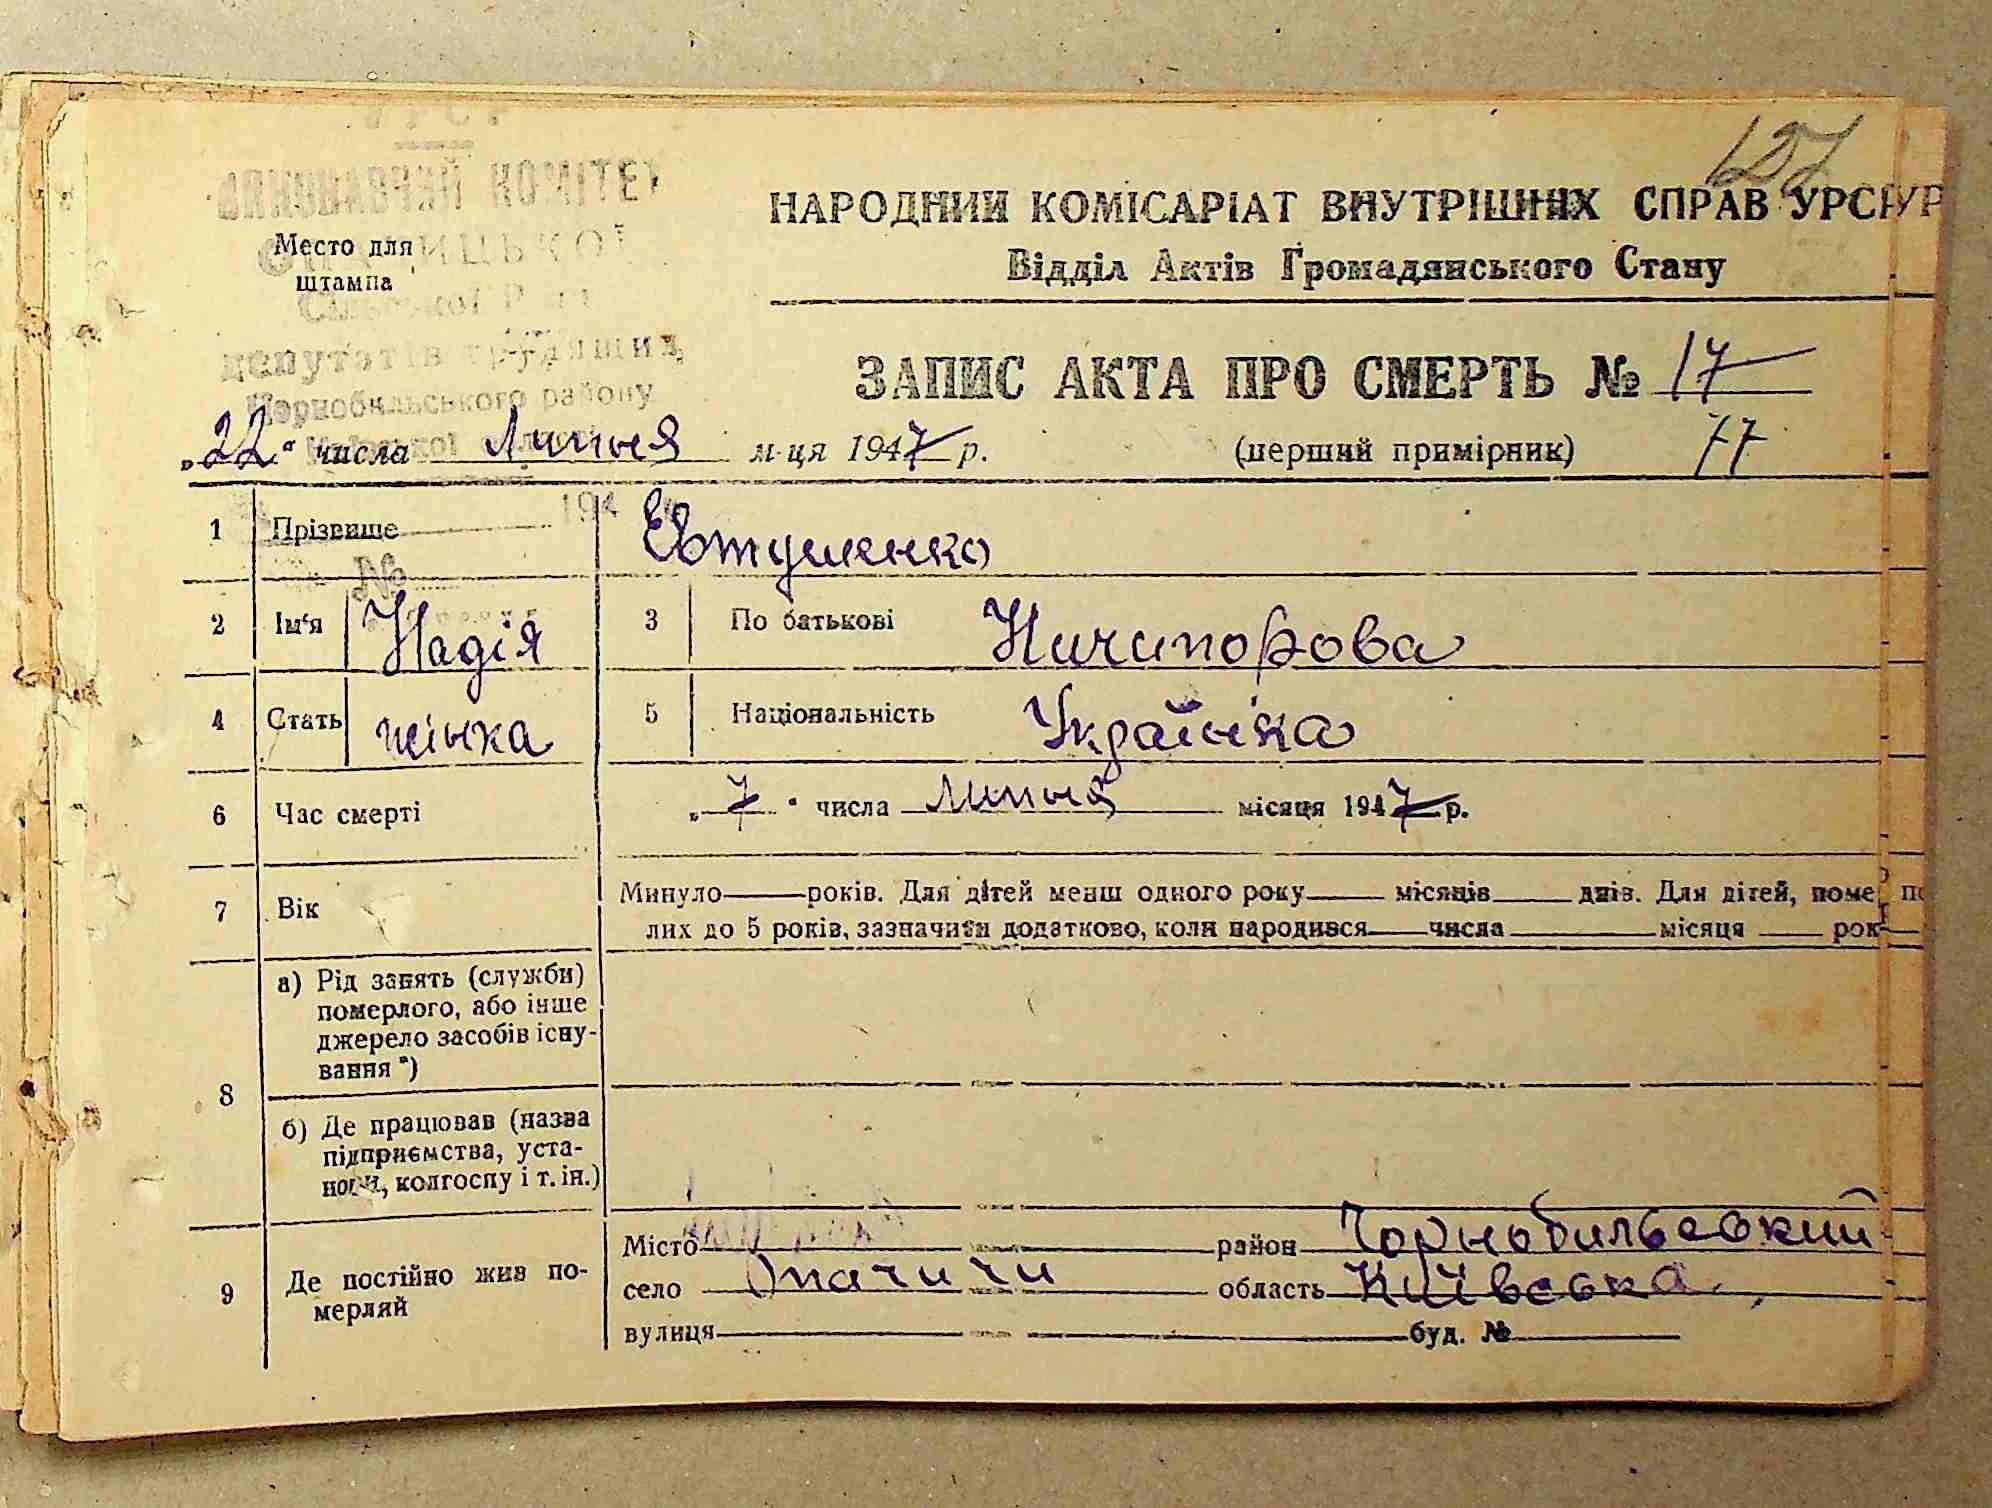 УРСР
127
ВИКОНАВЧИЙ КОМІТЕТ
НАРОДНИЙ КОМІСАРІАТ ВНУТРІШНІХ СПРАВ УРСР
Место для
штампа
Відділ Актів Громадянського Стану
Сільської Ради
депутатів трудящих
Чорнобильського району
Київської області
ЗАПИС АКТА ПРО СМЕРТЬ № 17
„22“ числа Липня м-ця 1947 р. (перший примірник) 77
194
№
1 Прізвище Евтушенко
2 Ім‘я Надія 3 По батькові Ничипорова
4 Стать жінка 5 Національність Українка
6 Час смерті „7“ числа липня місяця 1947 р.
7 Вік Минуло років. Для дітей менш одного року місяців днів. Для дітей, поме
лих до 5 років, зазначити додатково, коли народився числа місяця рок
8 а) Рід занять (служби)
померлого, або інше
джерело засобів існу-
вання *)
б) Де працював (назва
підприємства, уста-
нови, колгоспу і т. ін.)
9 Де постійно жив по-
мерлий
Місто район Чорнобильський
село Опачичи область Київська
вулиця буд. №